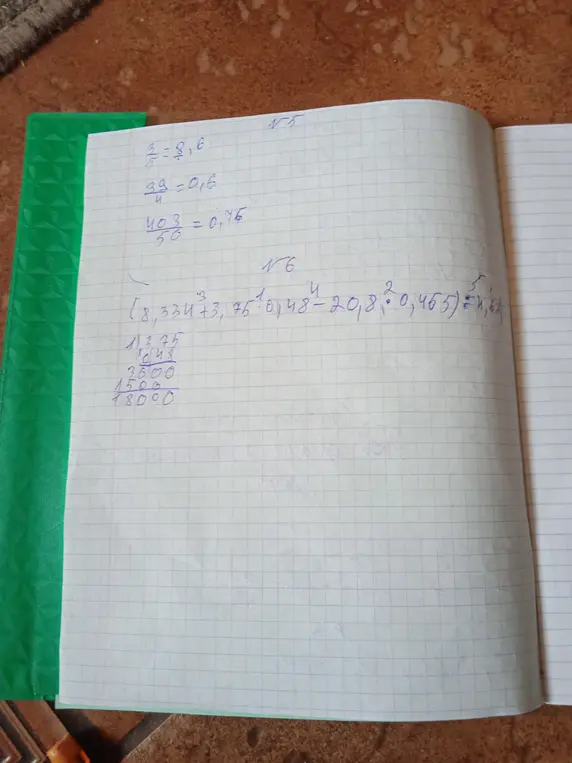 №5
3/5 = 8,6
39/4 = 0,6
403/50 = 0,76
№6
(8,334 + 3,75 · 0,48 - 20,8 · 0,465) :
1) 3,75
0,48
3000
1500
18000